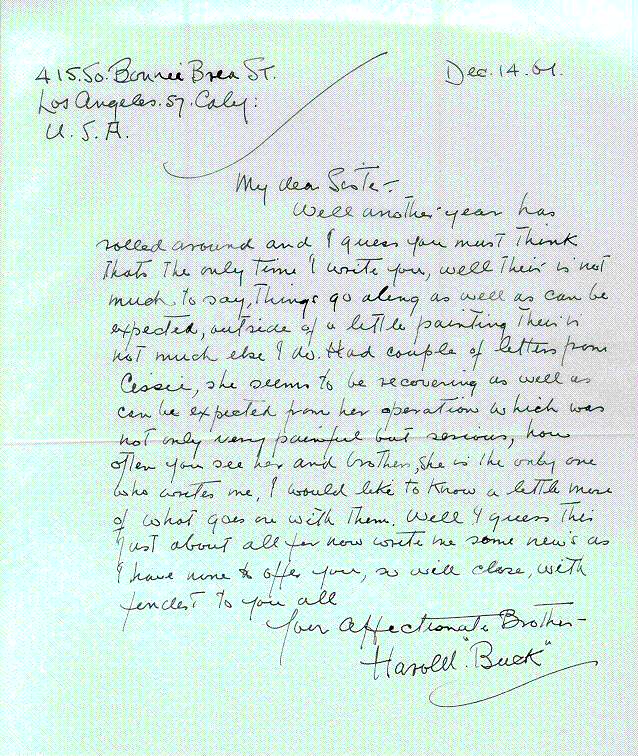 415. So. Bonnie Brea St.
Dec. 14. 61.
Los Angeles. 57. Caly:
U. S. A.
My dear Sister –
Well another year has
rolled around and I guess you must think
thats the only time I write you, well their is not
much to say, Things go along as well as can be
expected, outside of a little painting their is
not much else I do. Had couple of letters from
Cissie, she seems to be recovering as well as
can be expected from her operation which was
not only very painful but serious, how
often you see her and brothers, she is the only one
who writes me, I would like to know a little more
of what goes on with them. Well I guess this
just about all for now write me some new's as
I have none to offer you, so will close, with
to you all
Your Affectionate Brother –
Harold. "Buck"